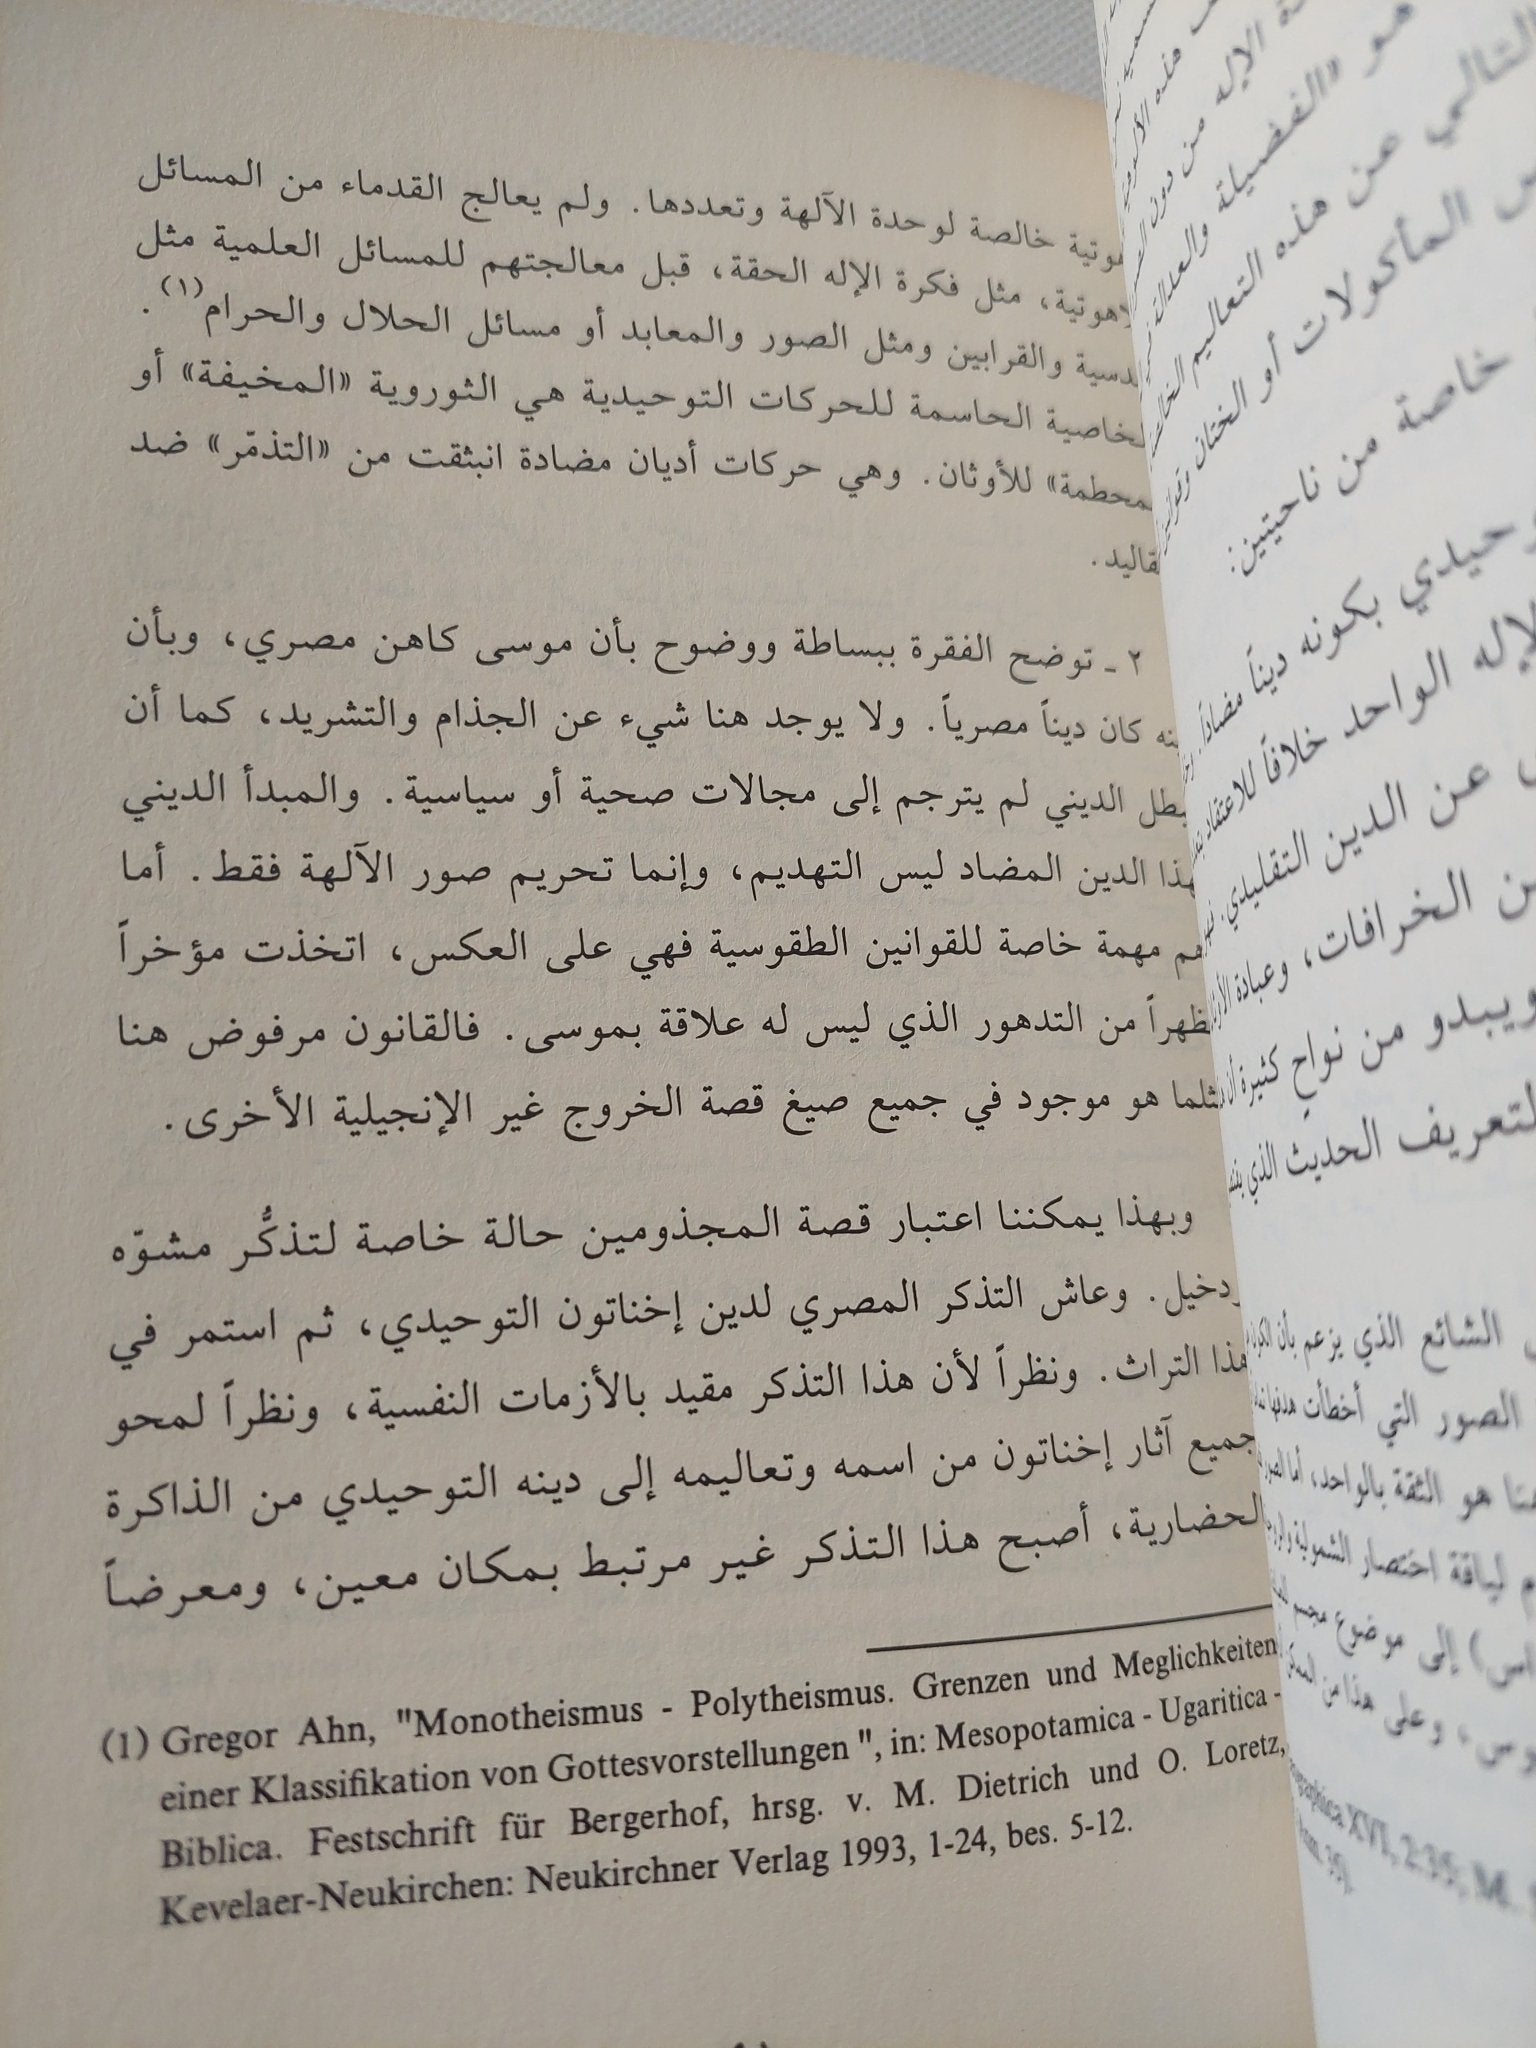 خالصة لوحدة الآلهة وتعددها. ولم يعالج القدماء من المسائل
مثل فكرة الإله الحقة، قبل معالجتهم للمسائل العلمية مثل
والقرابين ومثل الصور والمعابد أو مسائل الحلال والحرام(١).
الحاسمة للحركات التوحيدية هي الثوروية «المخيفة» أو
للأوثان. وهي حركات أديان مضادة انبثقت من «التذمّر» ضد
٢ ـ توضح الفقرة ببساطة ووضوح بأن موسى كاهن مصري، وبأن
كان ديناً مصرياً. ولا يوجد هنا شيء عن الجذام والتشريد، كما أن
الديني لم يترجم إلى مجالات صحية أو سياسية. والمبدأ الديني
الدين المضاد ليس التهديم، وإنما تحريم صور الآلهة فقط. أما
مهمة خاصة للقوانين الطقوسية فهي على العكس، اتخذت مؤخراً
من التدهور الذي ليس له علاقة بموسى. فالقانون مرفوض هنا
هو موجود في جميع صيغ قصة الخروج غير الإنجيلية الأخرى.
وبهذا يمكننا اعتبار قصة المجذومين حالة خاصة لتذكُّر مشوّه
ودخيل. وعاش التذكر المصري لدين إخناتون التوحيدي، ثم استمر في
هذا التراث. ونظراً لأن هذا التذكر مقيد بالأزمات النفسية، ونظراً لمحو
جميع آثار إخناتون من اسمه وتعاليمه إلى دينه التوحيدي من الذاكرة
الحضارية، أصبح هذا التذكر غير مرتبط بمكان معين، ومعرضاً
(1) Gregor Ahn, "Monotheismus - Polytheismus. Grenzen und Meglichkeiten
einer Klassifikation von Gottesvorstellungen ", in: Mesopotamica - Ugaritica -
Biblica. Festschrift für Bergerhof, hrsg. v. M. Dietrich und O. Loretz,
Kevelaer-Neukirchen: Neukirchner Verlag 1993, 1-24, bes. 5-12.
هذه
الإله من دون
هو «الفضيلة والعدالة
التالي عن هذه التعاليم
المأكولات أو الختان
خاصة من ناحيتين:
بكونه ديناً مضاداً
الواحد خلافاً
عن الدين التقليدي.
الخرافات، وعبادة
ويبدو من نواحٍ كثيرة
الحديث الذي
الشائع الذي يزعم بأن
الصور التي أخطأت هدفها
هنا هو الثقة بالواحد، أما
لياقة اختصار الشمولية
إلى موضوع مجسم
وعلى هذا من
XVI, 2:35; M.